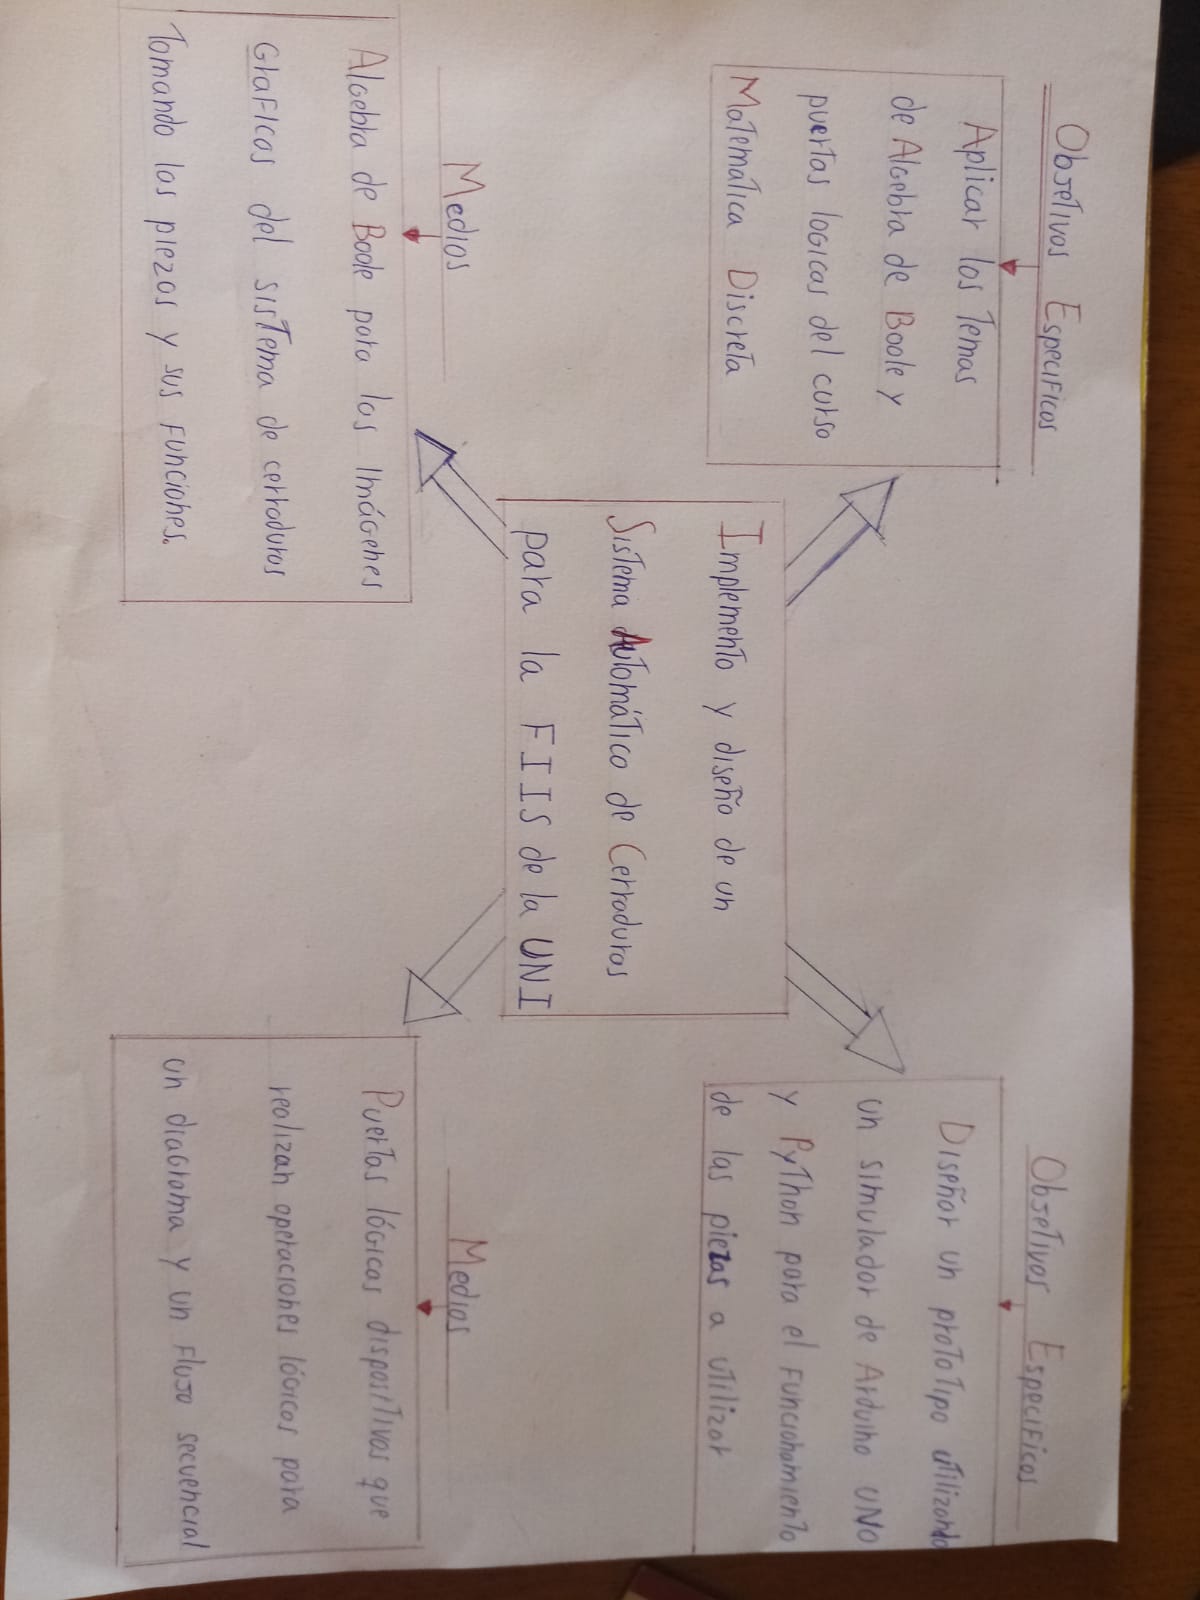 Objetivos Especificos
Aplicar los Temas
de Algebra de Boole y
puertas logicas del curso
Matemática Discreta
Objetivos Especificos
Diseñar un prototipo utilizando
un simulador de Arduino UNO
y Python para el Funcionamiento
de las piezas a utilizar
Implemento y diseño de un
Sistema Automático de Cerraduras
para la FIIS de la UNI
Medios
Algebra de Boole para las Imágenes
Graficas del sistema de cerraduras
Tomando las piezas y sus Funciones.
Medios
Puertas lógicas dispositivos que
realizan operaciones lógicas para
un diagrama y un Flujo secuencial